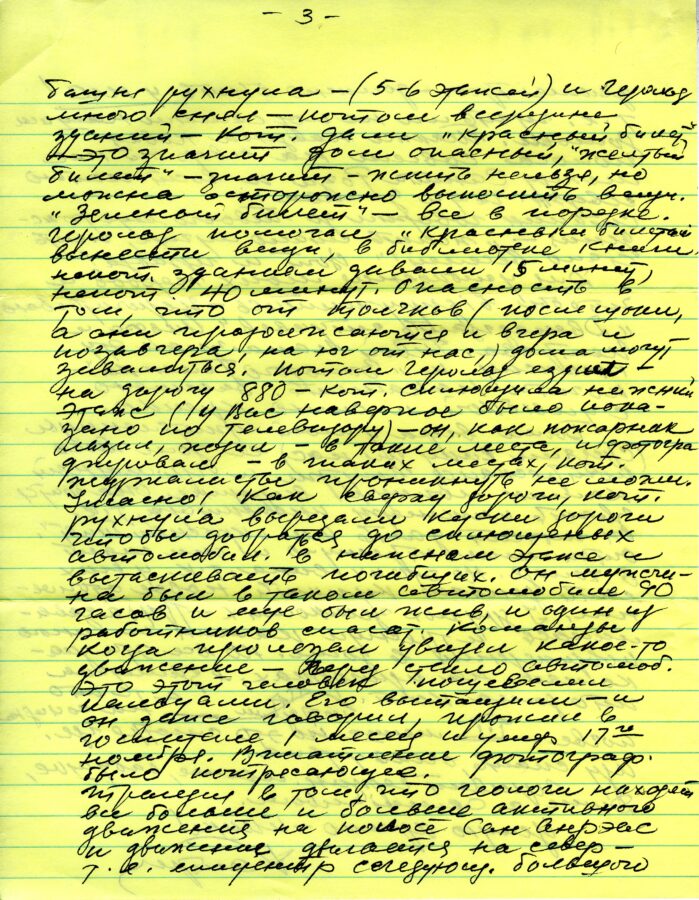 - 3 -
башня рухнула – (5-ь этажей) и Геролд
много снял – потом в середине
зданий – кот. дали "красный билет"
– это значит дом опасный, "желтый
билет" – значит – жить нельзя, но
можна осторожно выносить вещи.
"Зеленый билет" – все в порядке.
Геролд помогал "красным билетам"
вынести вещи, в библиотеке книги.
некот. зданиям давали 15 минут,
некот. 40 минут. Опасность в
том, что от толчков (после
а они продолжаются и вчера и
позавчера, на юг от нас,) дома могут
завалиться. Потом Геролд ездил –
на дорогу 880 – кот. сплющила нежний
этаж (у Вас наверное было пока-
зано по телевизору) – он, как пожарник
лазил, ходил – в такие места, и фотогра
фировал – в таких местах, кот.
журналисты проникнуть не могли.
Ужасно! Как сверху дороги, кот.
рухнула вырезали куски дороги
чтобы добраться до сплющеных
автомобил. в нижнем этаже и
вытаскивать погибших. Он мужчи-
на был в таком автомобиле 90
часов и еще был жив, и один из
работников спасат. команды
когда пролезал увидел какое-то
движение – стало автомоб.
Это этот человек
пальцами. Его вытащили – и
он даже говорил, прожил в
госпитале 1 месяц и умер 17го
ноября. Впечатление фотограф.
было потресающее.
Трагедия в том, что геологи находят
все больше и больше активного
движения на полосе Сан Анрэас
и движение двигается на север –
т. е. эпицентр следующ. большого